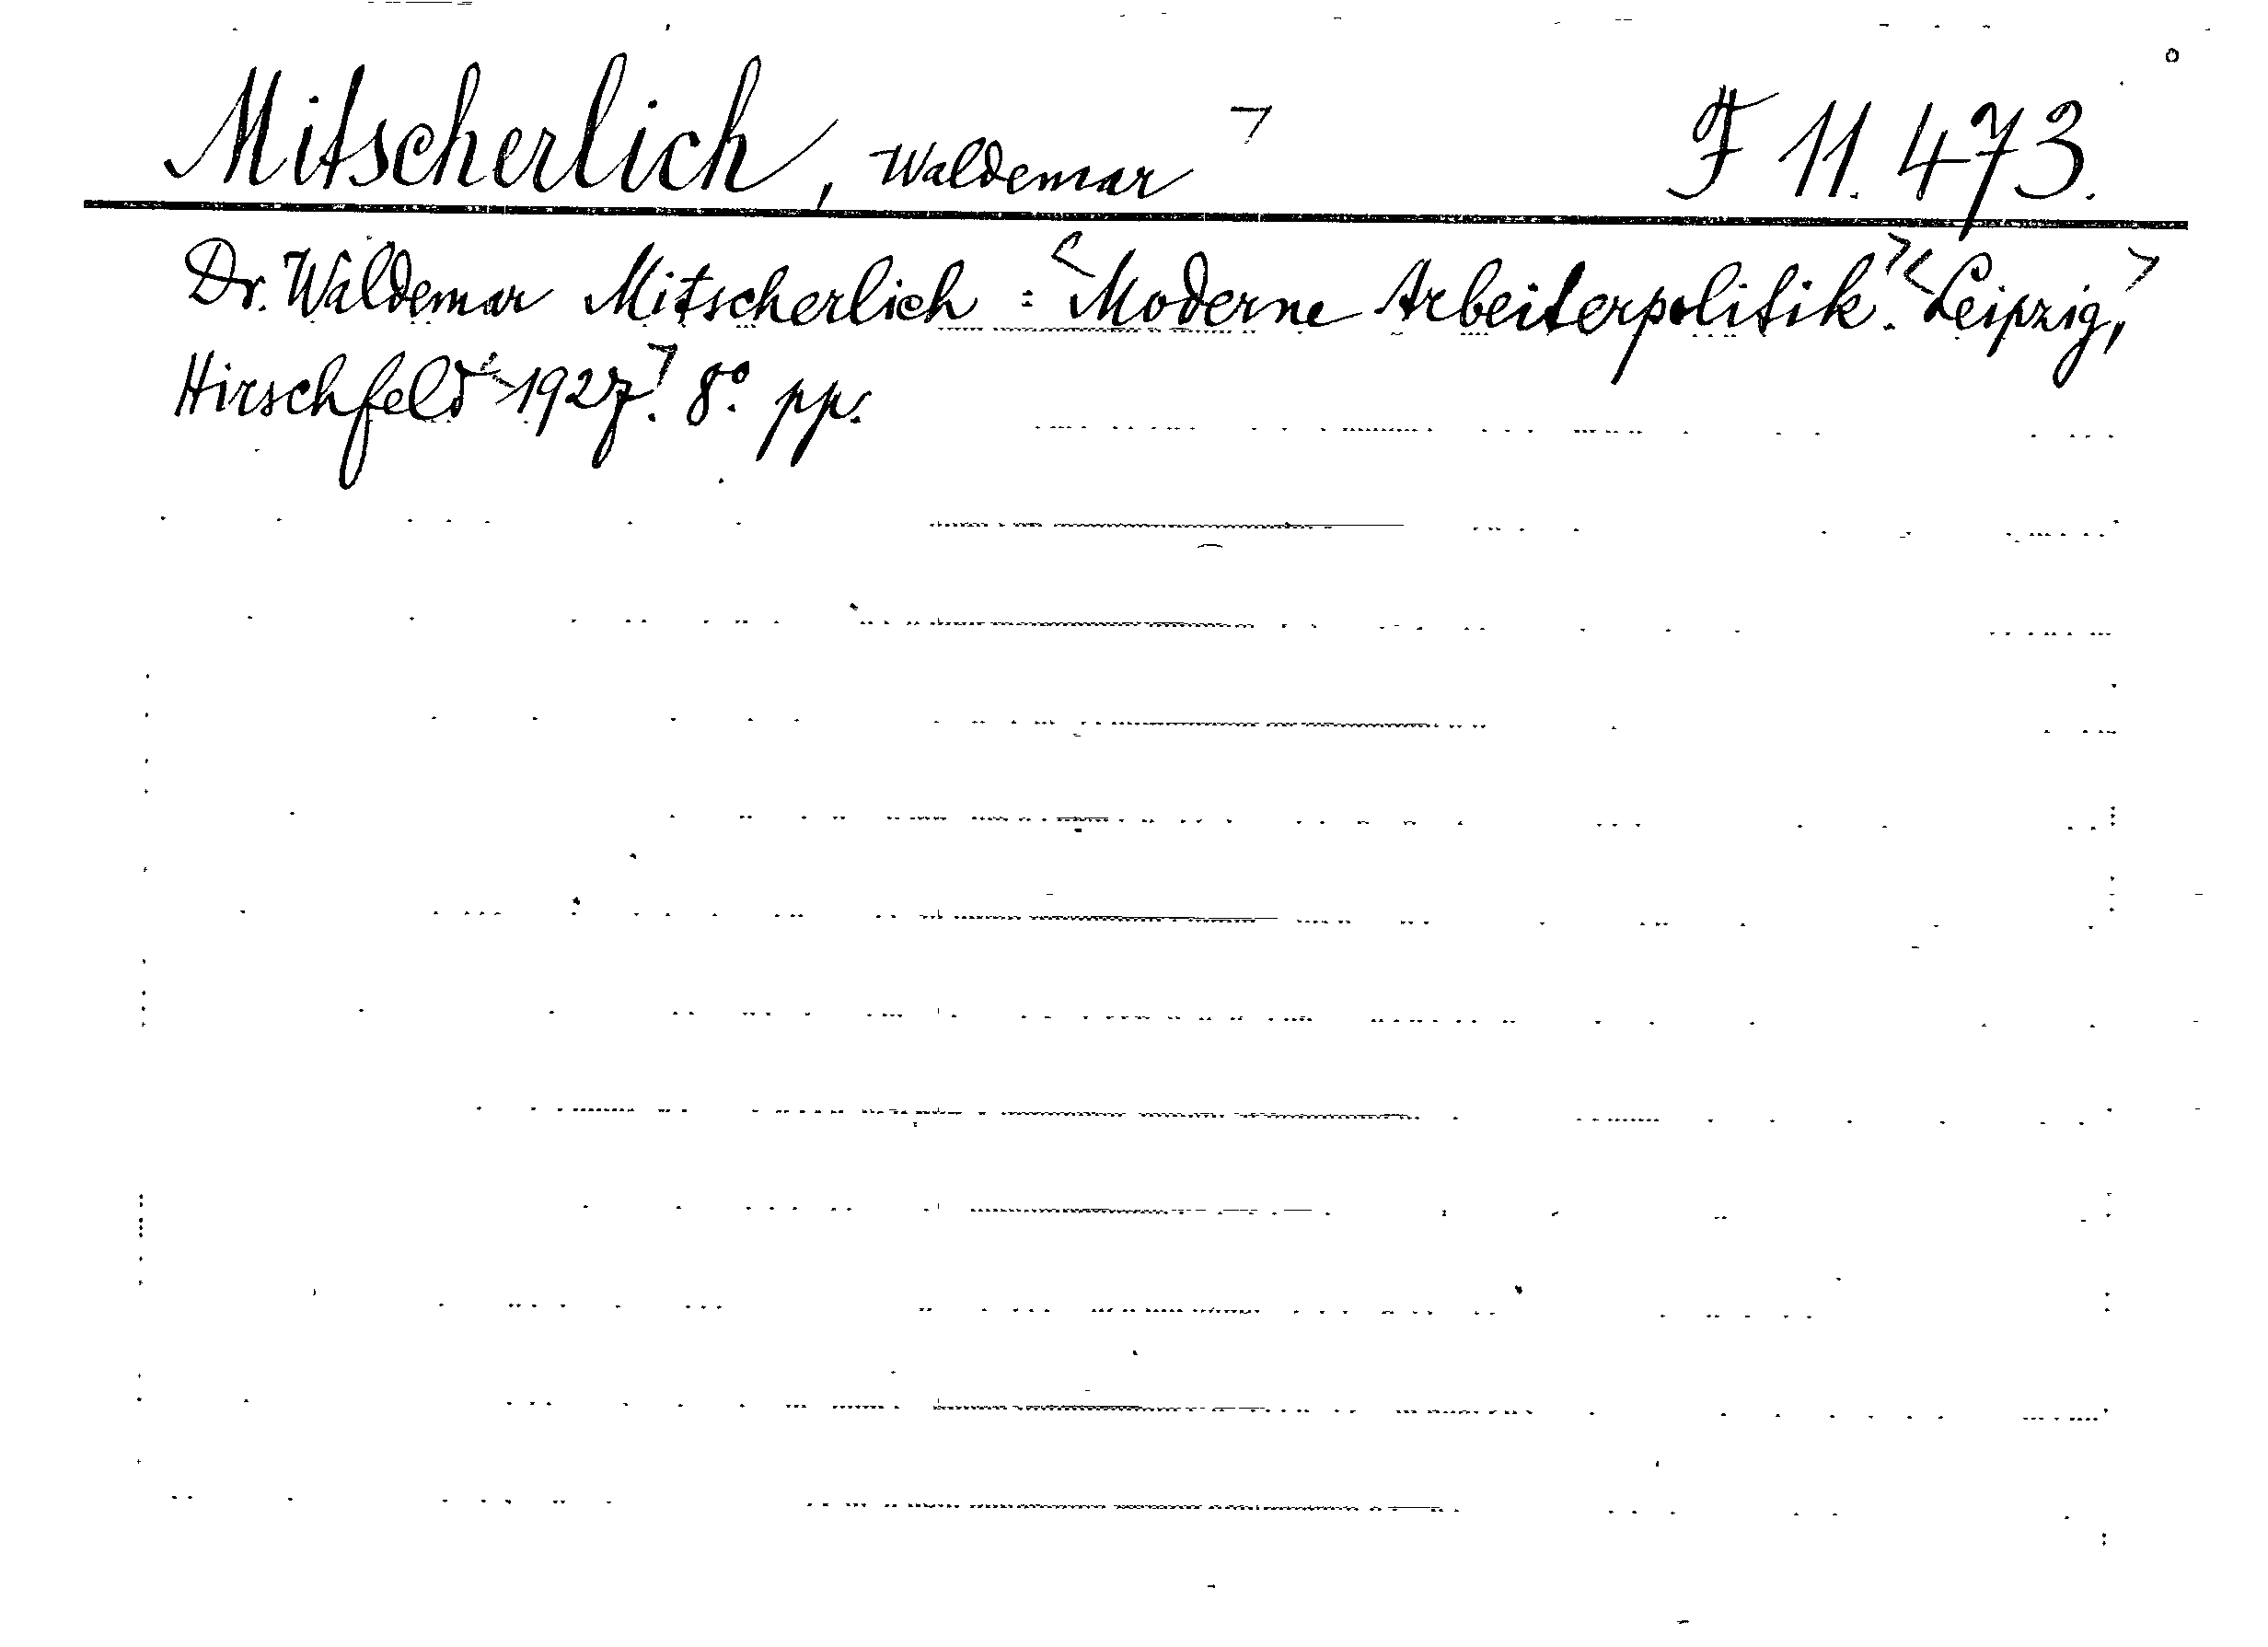 Mitscherlich, Waldemar F 11.473.
Dr. Waldemar Mitscherlich : Moderne Arbeiterpolitik. Leipzig,
Hirschfeld 1927. 8º. pp.